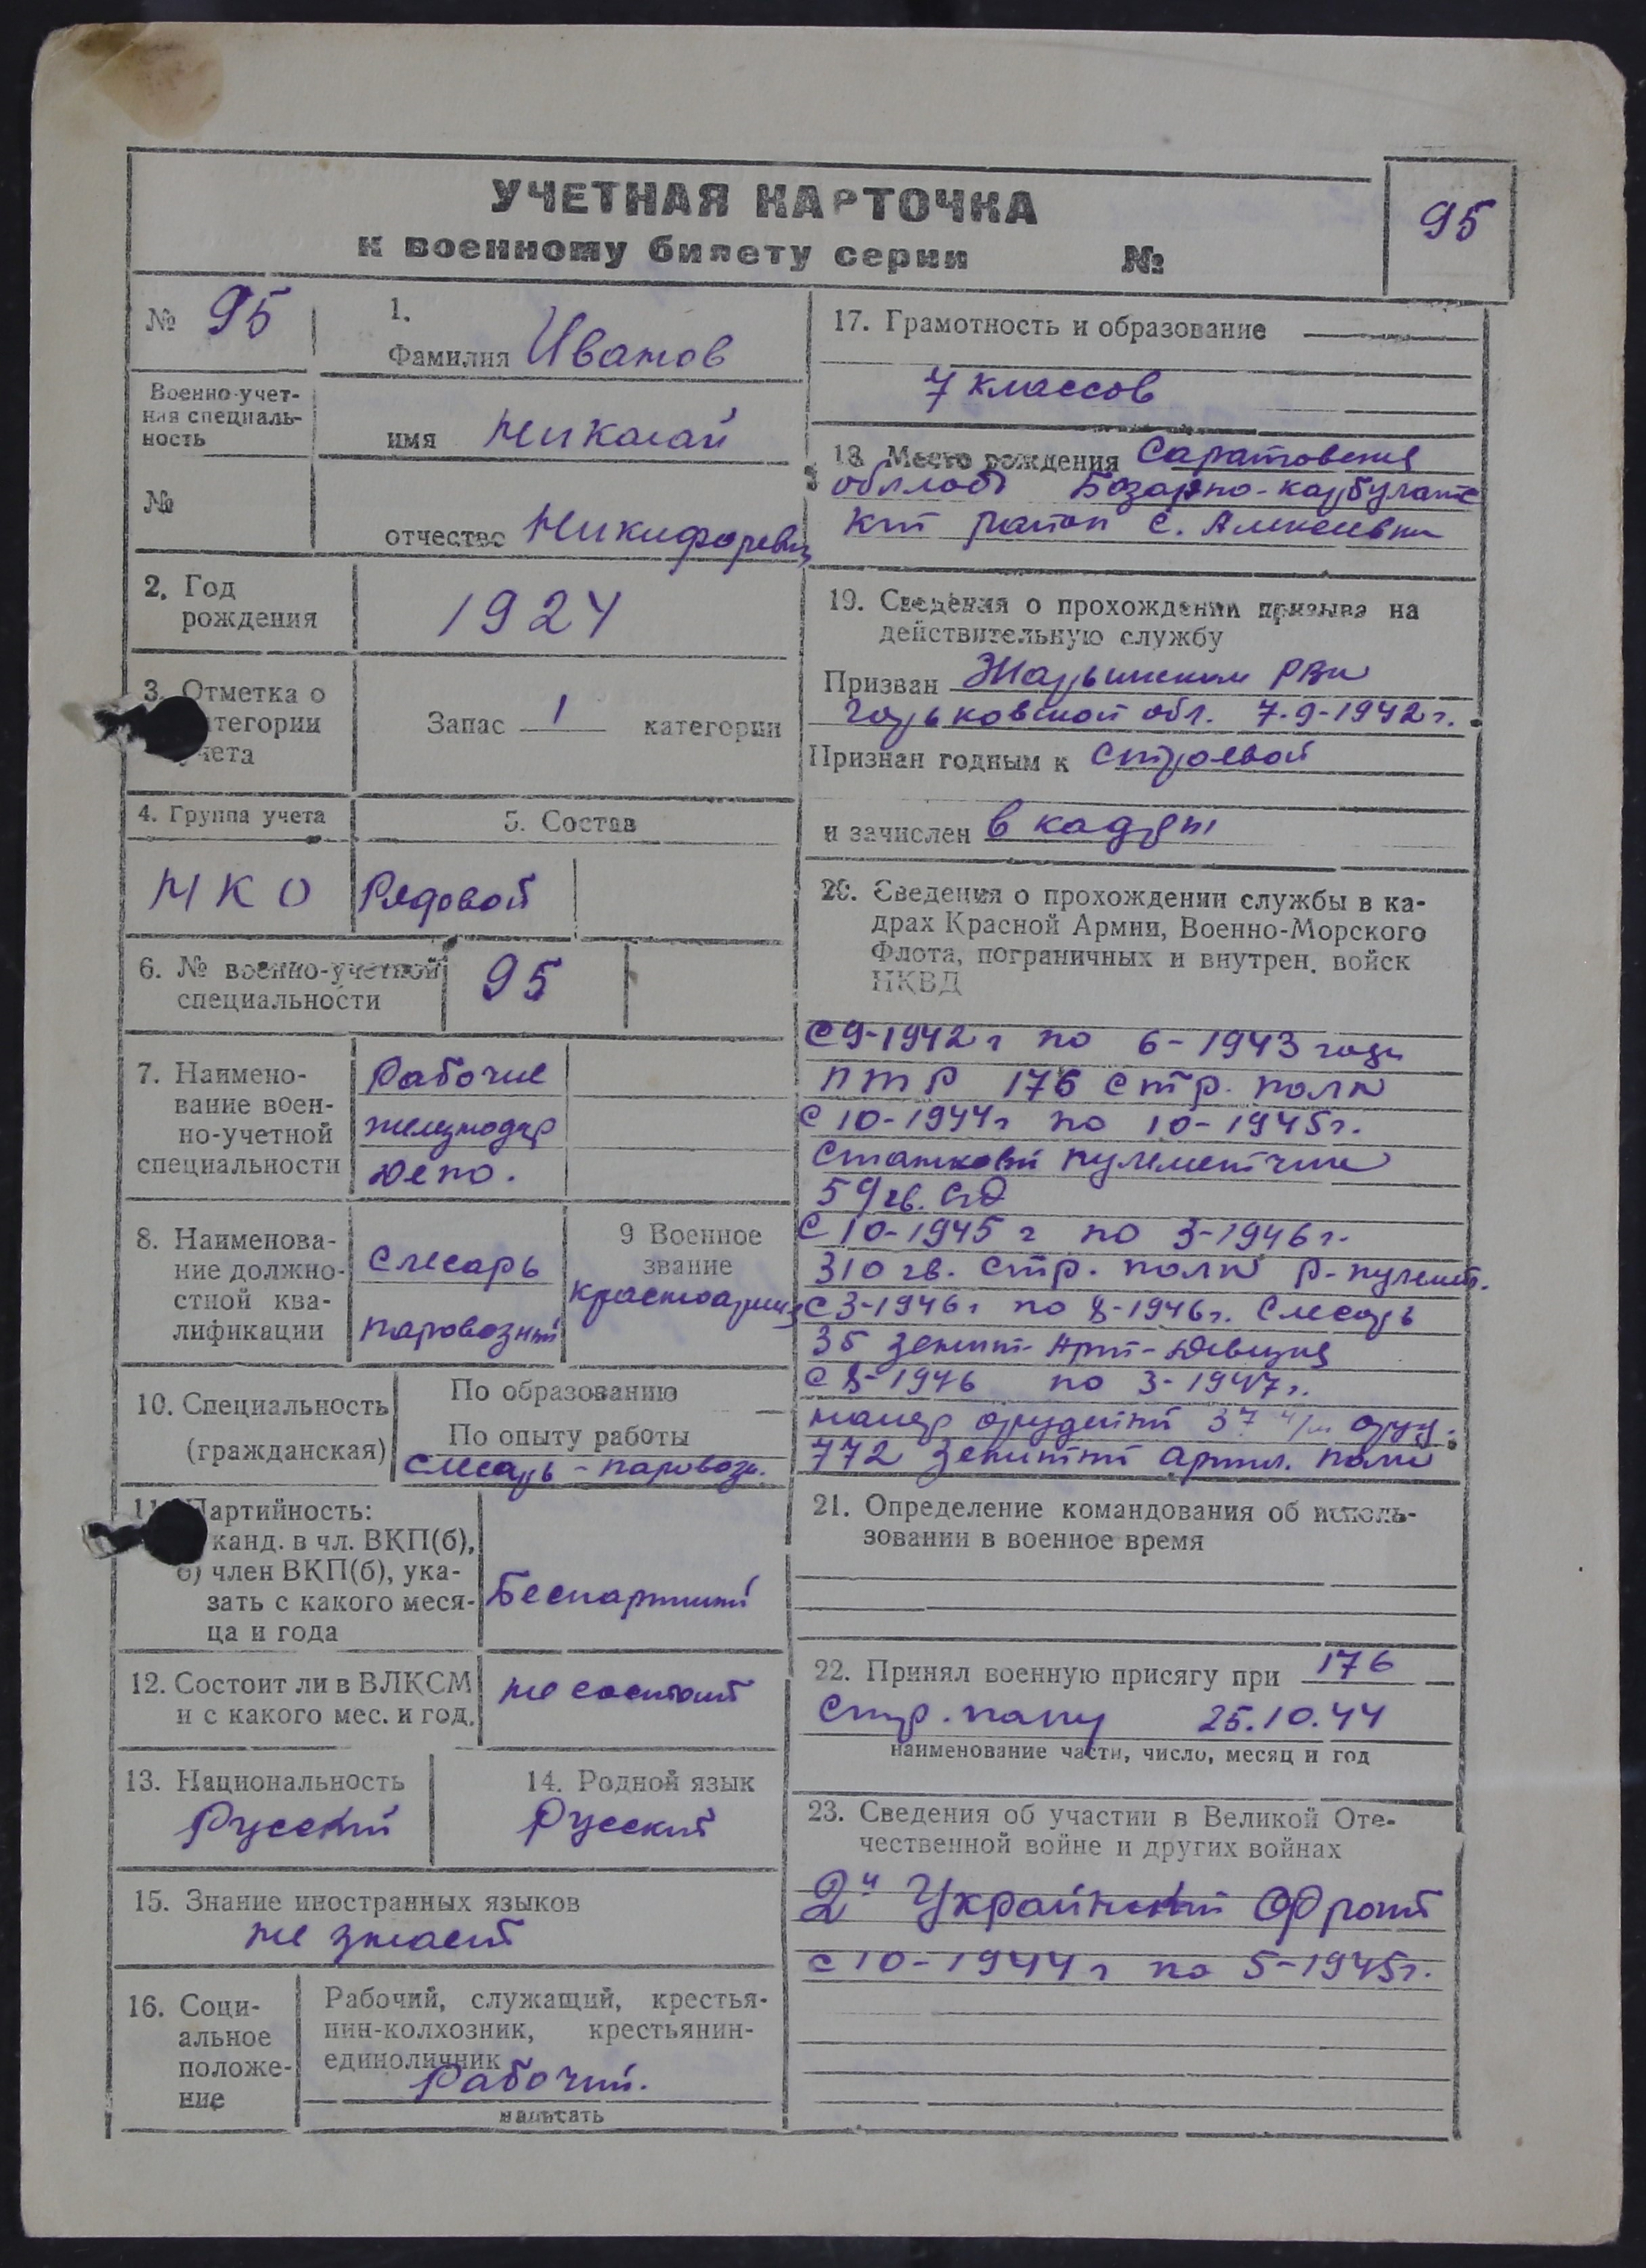 УЧЕТНАЯ КАРТОЧКА
к военному билету серии №
95
№ 95
Военно-учет-
ная специаль-
ность
№
1.
Фамилия Иванов
имя Николай
отчество Никифорович
2. Год
рождения
1924
3. Отметка о
категории
учета
Запас 1 категории
4. Группа учета
5. Состав
НКО
Рядовой
6. № военно-учетной
специальности
95
7. Наимено-
вание воен-
но-учетной
специальности
Рабочие
железнодор
депо.
8. Наименова-
ние должно-
стной ква-
лификации
Слесарь
паровозный
9 Военное
звание
красноармец
10. Специальность
(гражданская)
По образованию —
По опыту работы
Слесарь-паровозн.
11. Партийность:
канд. в чл. ВКП(б),
б) член ВКП(б), ука-
зать с какого меся-
ца и года
Беспартийный
12. Состоит ли в ВЛКСМ
и с какого мес. и год.
не состоит
13. Национальность
Русский
14. Родной язык
Русский
15. Знание иностранных языков
не знает
16. Соци-
альное
положе-
ние
Рабочий, служащий, крестья-
нин-колхозник, крестьянин-
единоличник
Рабочий.
написать
17. Грамотность и образование
7 классов
18. Место рождения Саратовская
область Базарно-карбулакс
кий район с. Алексеевка
19. Сведения о прохождении призыва на
действительную службу
Призван РВК
Горьковской обл. 7-9-1942г.
Признан годным к строевой
и зачислен в кадры
20. Сведения о прохождении службы в ка-
драх Красной Армии, Военно-Морского
Флота, пограничных и внутрен. войск
НКВД
С 9-1942 г по 6-1943 года
ПТР 176 стр. полк
С 10-1944г по 10-1945г.
Станковый пулеметчик
59 гв. СД
С 10-1945 г по 3-1946 г.
310 гв. стр. полк р-пулемет.
С 3-1946г по 8-1946г. Слесарь
35 зенит-Арт-Дивизия
С 8-1946 по 3-1947г.
номер орудийный 37 м/м оруд.
772 Зенитный артил. полк
21. Определение командования об исполь-
зовании в военное время
22. Принял военную присягу при 176
Стр. полку 25.10.44
наименование части, число, месяц и год
23. Сведения об участии в Великой Оте-
чественной войне и других войнах
2й Украинский Фронт
с 10-1944г по 5-1945г.